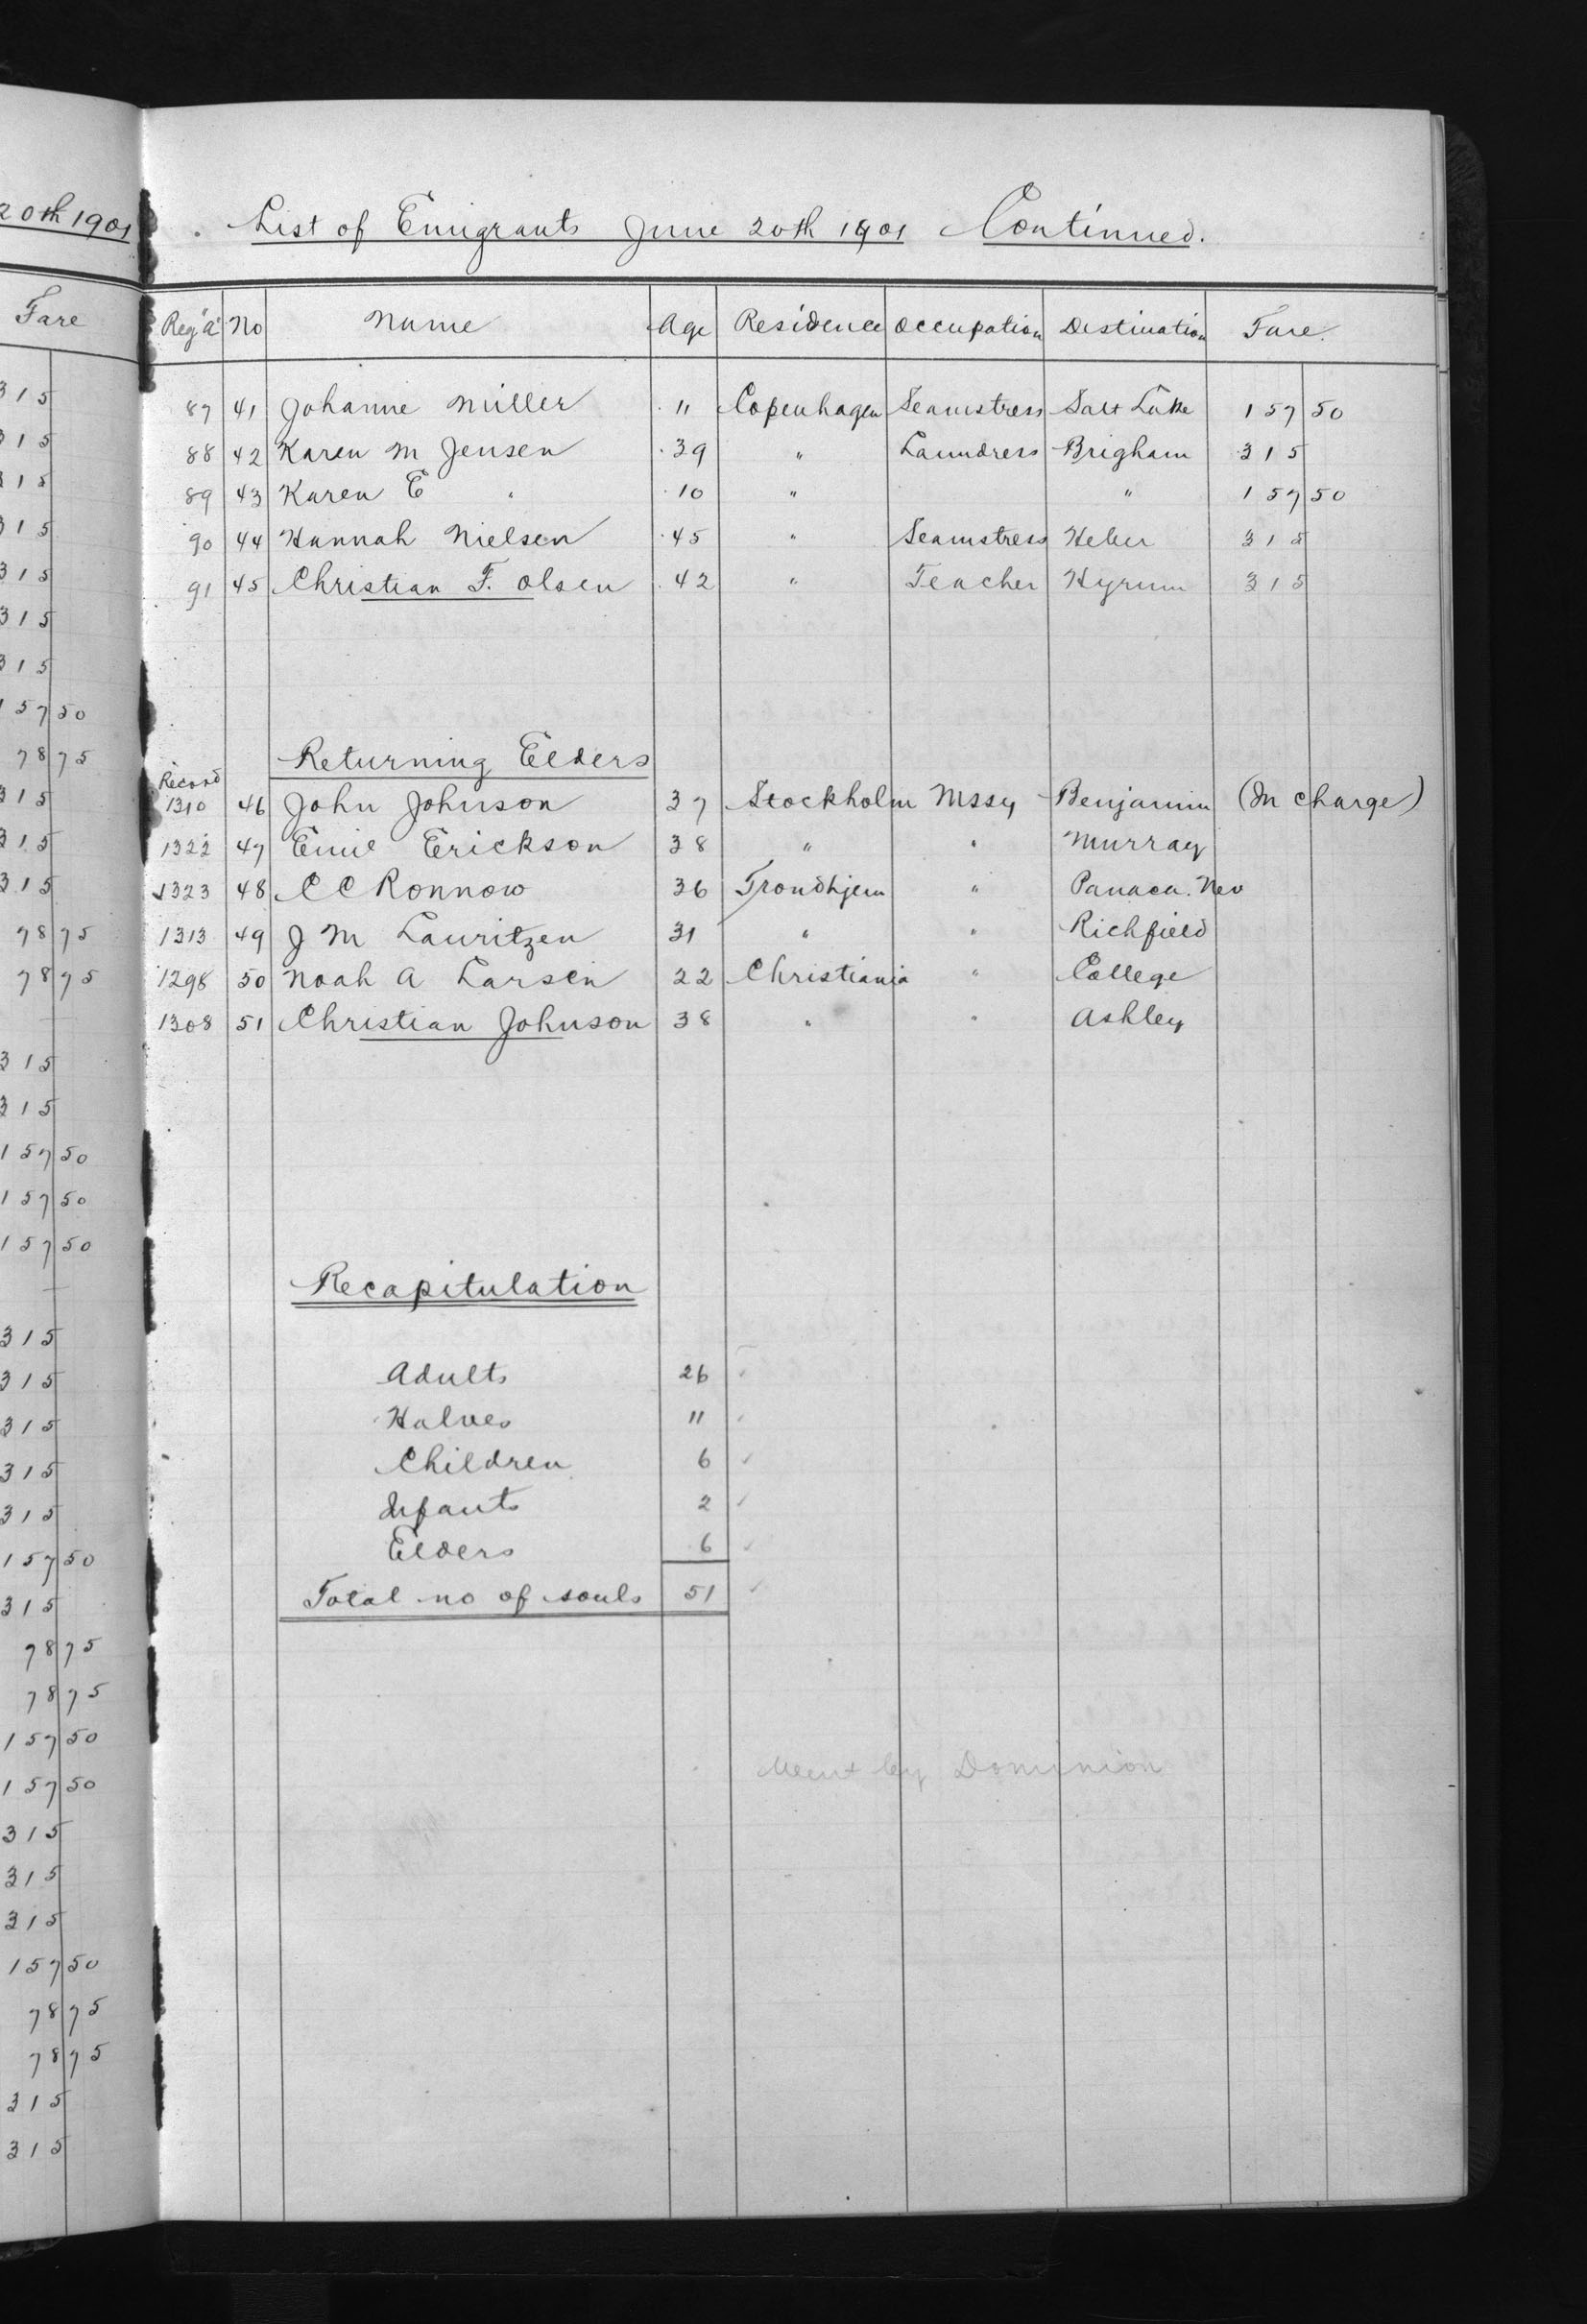 20th 1901
Fare
315
315
315
315
315
315
315
157 50
78 75
315
315
315
78 75
78 75
315
315
157 50
157 50
157 50
315
315
315
315
315
157 50
315
78 75
78 75
157 50
157 50
315
315
315
157 50
78 75
78 75
315
315
List of Emigrants June 20th 1901 Continued.
Reg "A" No Name Age Residence Occupation Destination Fare.
87 41 Johanne Müller 11 Copenhagen Seamstress Salt Lake 157 50
88 42 Karen M Jensen 39 " Laundress Brigham 315
89 43 Karen E " 10 " " 157 50
90 44 Hannah Nielsen 45 " Seamstress Heber 315
91 45 Christian F. Olsen 42 " Teacher Hyrum 315
Returning Elders
Record
1310 46 John Johnson 37 Stockholm Mssy Benjamin (In charge)
1322 47 Emil Erickson 38 " " Murray
1323 48 C C Ronnow 36 Trondhjem " Panaca. Nev
1313 49 J M Lauritzen 31 " " Richfield
1298 50 Noah A Larsen 22 Christiania " College
1308 51 Christian Johnson 38 " " Ashley
Recapitulation
Adults 26
Halves 11
Children 6 ✓
Infants 2 ✓
Elders 6 ✓
Total no of souls 51 ✓
Went by Dominion